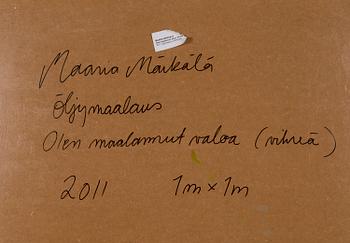 Maaria Märkälä
Öljymaalaus
Olen maalannut valoa (vihreä)
2011 1m x 1m